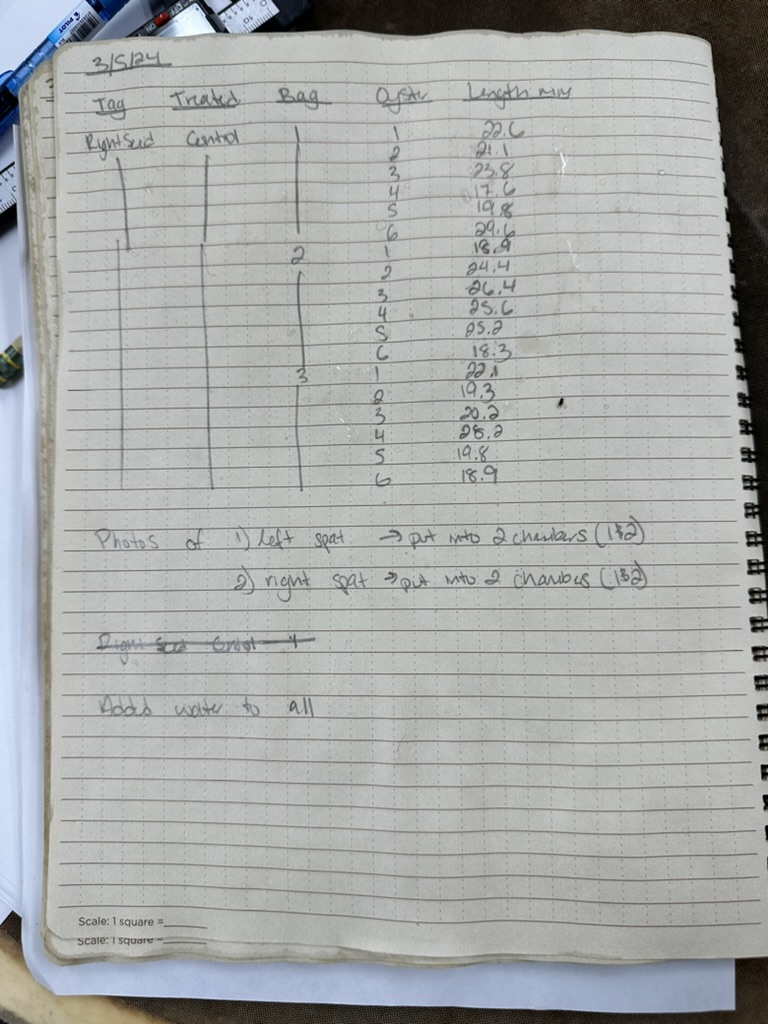 3/5/24
Tag Treated Bag Oyster Length mm
Right Seed Control 1 1 22.6
2 21.1
3 23.8
4 17.6
5 19.8
6 29.6
2 1 18.9
2 24.4
3 26.4
4 25.6
5 25.2
6 18.3
3 1 22.1
2 19.3
3 20.2
4 28.2
5 19.8
6 18.9
Photos of 1) left spat → put into 2 chambers (1&2)
2) right spat → put into 2 chambers (1&2)
Right Seed Control 1
Added water to all
Scale: 1 square =
Scale: 1 square =